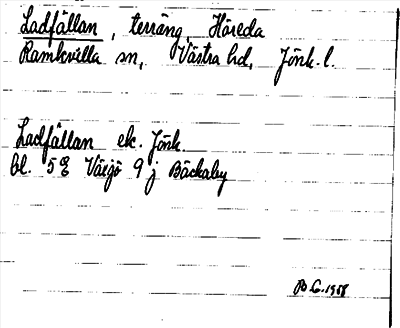 Ladfällan, terräng, Häreda
Ramkvilla sn, Västra hd, Jönk. l.
Ladfällan ek. Jönk.
bl. 5 E Växjö 9 j Bäckaby
B.G. 1958